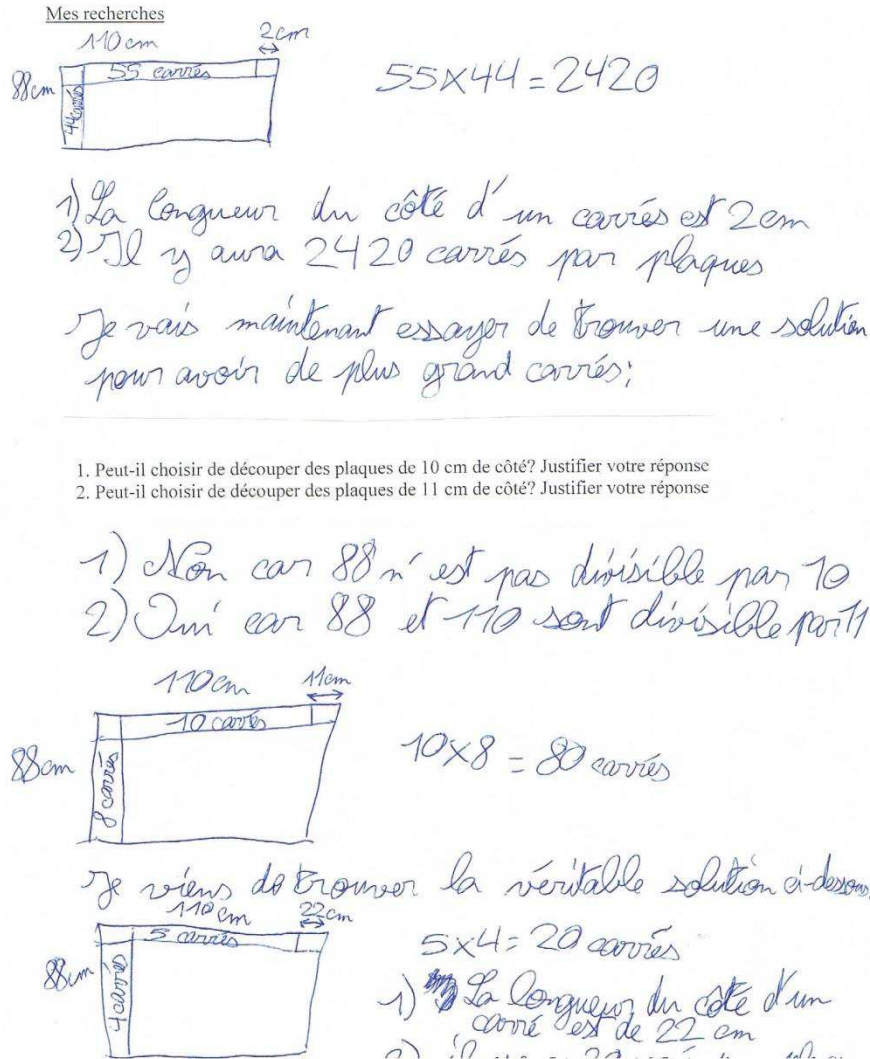 Mes recherches
110 cm
2cm
55 carrés
88cm
44 carrés
55x44=2420
1) La longueur du côté d'un carrés est 2cm
2) Il y aura 2420 carrés par plaques
Je vais maintenant essayer de trouver une solution
pour avoir de plus grand carrés;
1. Peut-il choisir de découper des plaques de 10 cm de côté? Justifier votre réponse
2. Peut-il choisir de découper des plaques de 11 cm de côté? Justifier votre réponse
1) Non car 88 n'est pas divisible par 10
2) Oui car 88 et 110 sont divisible par 11
110cm
11cm
10 carrés
88cm
8 carrés
10x8 = 80 carrés
Je viens de trouver la véritable solution ci-dessous
110 cm
22cm
5 carrés
88cm
4 carrés
5x4= 20 carrés
1) La longueur du côté d'un
carré est de 22 cm
2) il y